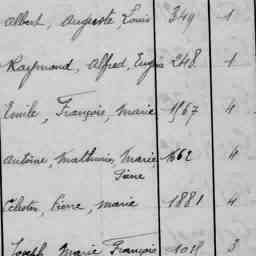 Albert, Auguste, Louis 349 1
Raymond, Alfred, Eugène 248 1
Emile, François, Marie 1967 4
Antoine, Mathurin, Marie 1662 4
Pierre
Célestin, Pierre, Marie 1881 4
Joseph Marie François 1018 3